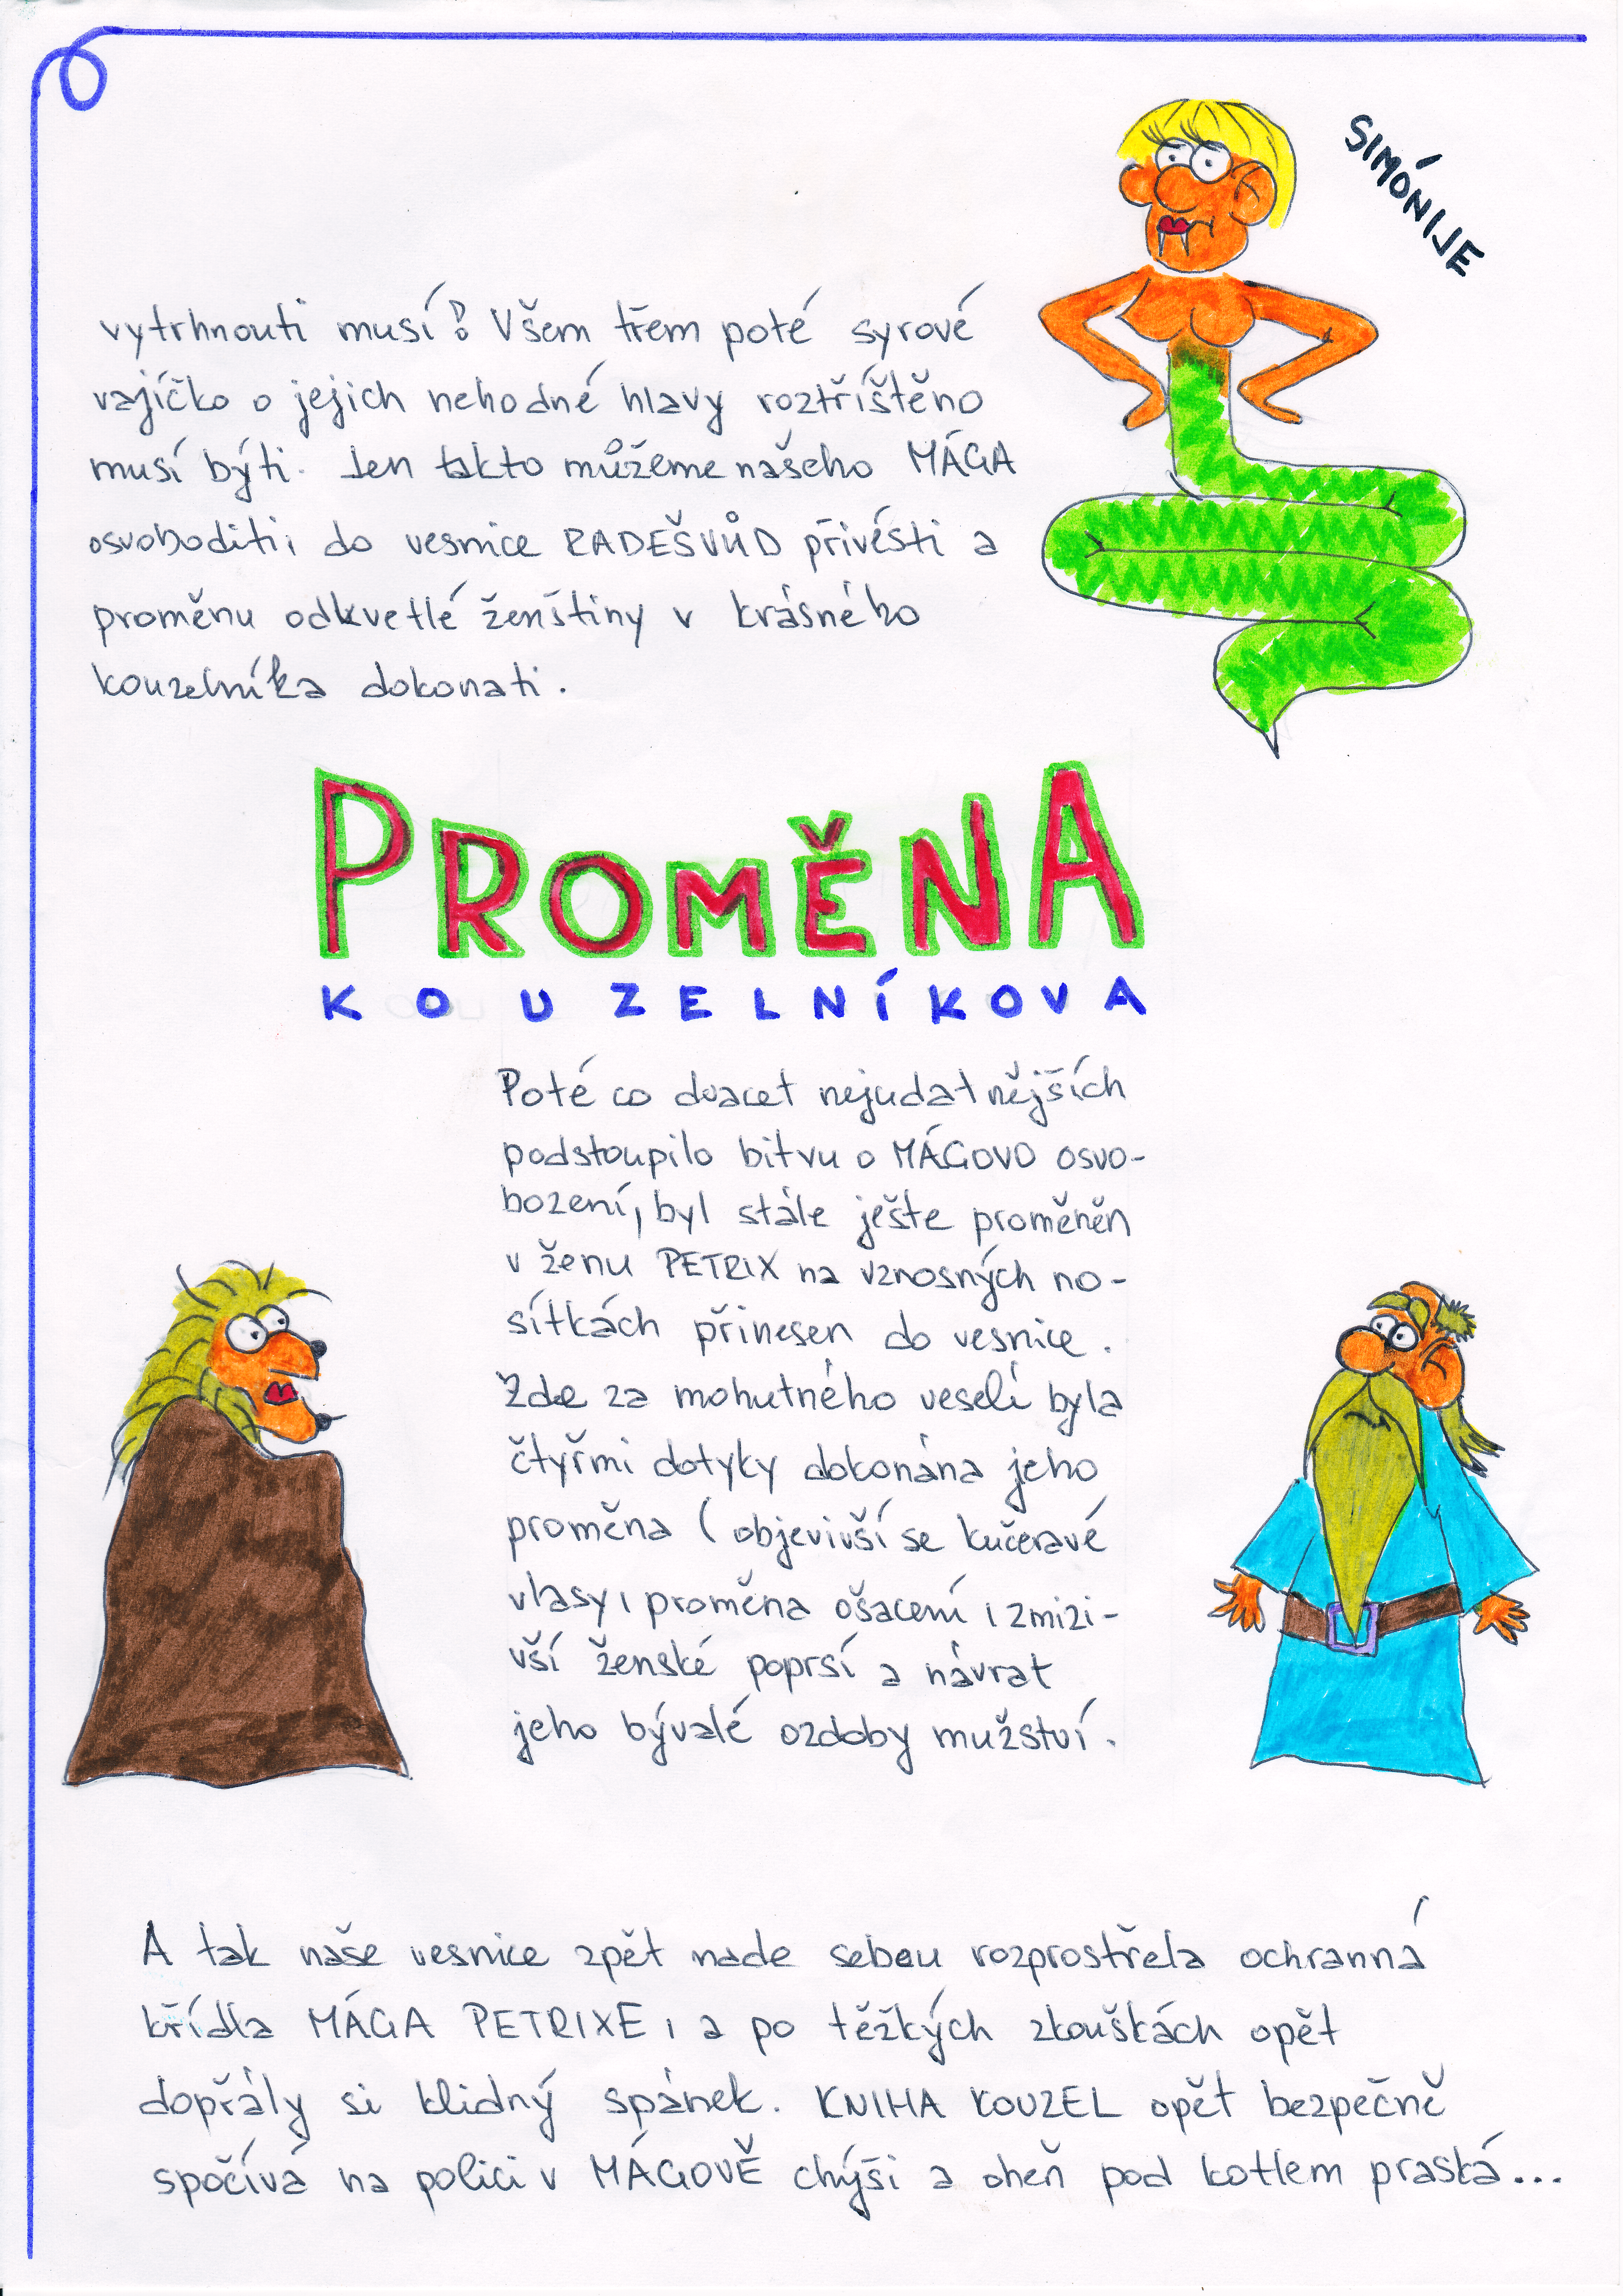 SIMÓNIJE
vytrhnouti musí! Všem třem poté syrové
vajíčko o jejich nehodné hlavy roztříštěno
musí býti. Jen takto můžeme našeho MÁGA
osvoboditi, do vesnice RADEŠVŮD přivésti a
proměnu odkvetlé ženštiny v krásného
kouzelníka dokonati.
PROMĚNA
KOUZELNÍKOVA
Poté co dvacet nejudatnějších
podstoupilo bitvu o MÁGOVO osvo-
bození, byl stále ješte proměněn
v ženu PETRIX na vznosných no-
sítkách přinesen do vesnice.
Zde za mohutného veselí byla
čtyřmi dotyky dokonána jeho
proměna (objevivší se kučeravé
vlasy, proměna ošacení, zmizi-
vší ženské poprsí a návrat
jeho bývalé ozdoby mužství.
A tak naše vesnice zpět nade sebou rozprostřela ochranná
křídla MÁGA PETRIXE, a po těžkých zkouškách opět
dopřály si klidný spánek. KNIHA KOUZEL opět bezpečně
spočívá na polici v MÁGOVĚ chýši a oheň pod kotlem praská...